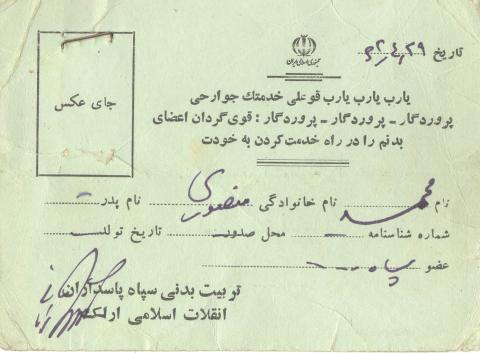 جمهوری اسلامی ایران
تاریخ ۶۲٫۴٫۲۹
جای عکس
یارب یارب یارب قوعلی خدمتك جوارحی
پروردگار ـ پروردگار ـ پروردگار : قوی‌گردان اعضای
بدنم را در راه خدمت کردن به خودت
نام محمد نام خانوادگی منصوری نام پدر
شماره شناسنامه محل صدور تاریخ تولد
عضو سپاه
تربیت بدنی سپاه پاسداران
انقلات اسلامی اراك